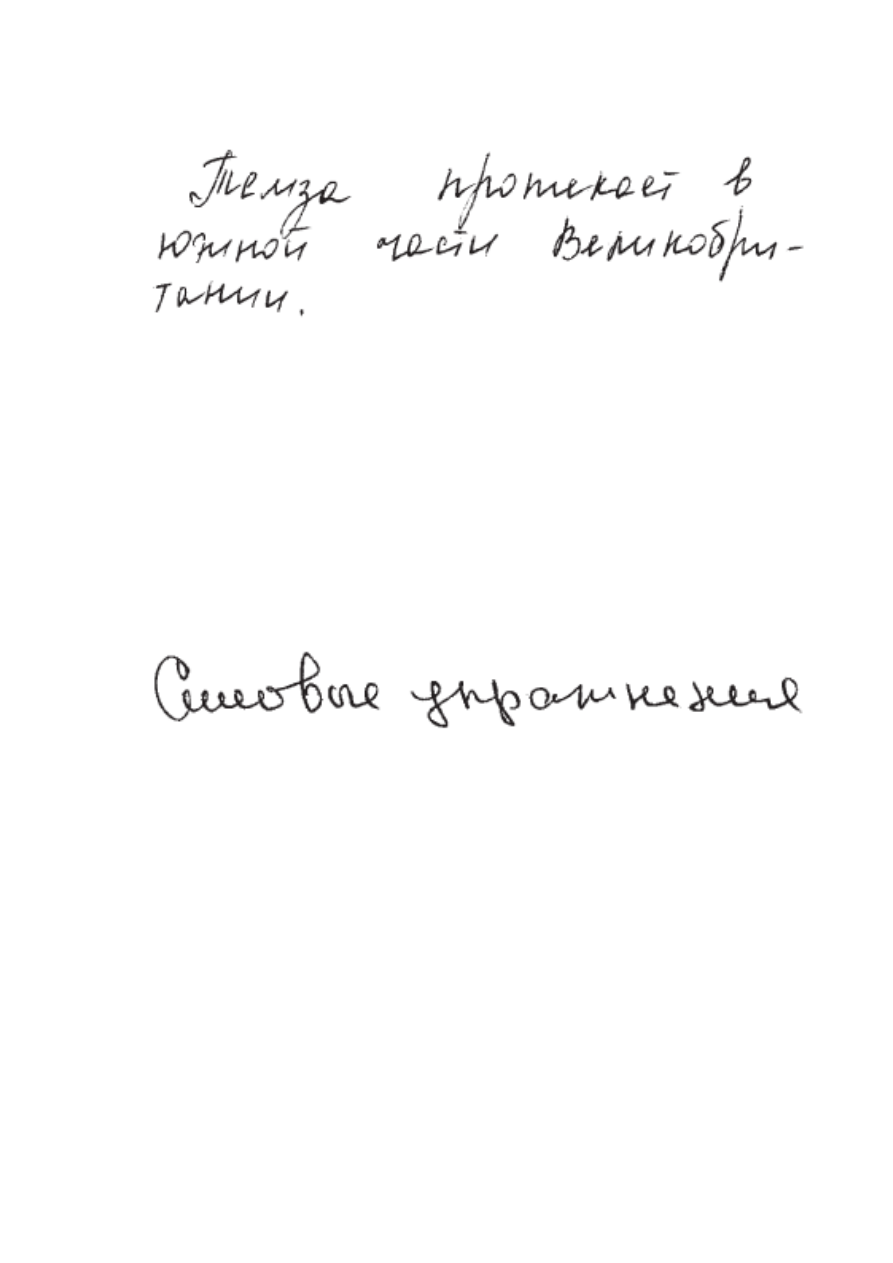 Темза протекает в
южной части Великобри-
тании.
Силовые упражнения